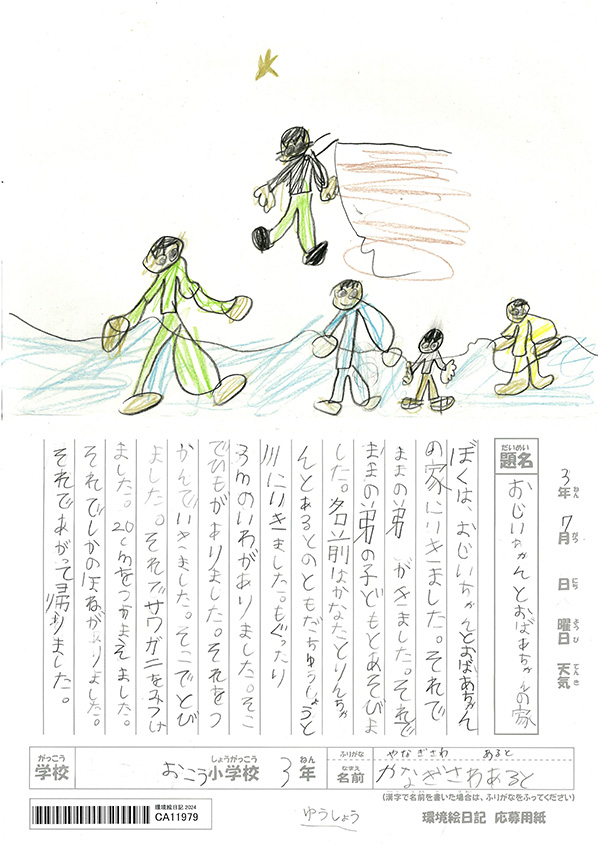 3年 7月 日 曜日 天気
ねん がつ にち ようび てんき
だいめい
題名
おじいちゃんとおばあちゃんの家
ぼくは、おじいちゃんとおばあちゃん
の家にいきました。それで
ままの弟 がきました。それで
ままの弟の子どもとあそびま
した。名前はかなたとりんちゃ
んとあるとのともだちゆうしょうと
川にいきました。もぐったり
3mのいわがありました。そこ
でひもがありました。それをつ
かんでいきました。そこでとび
ました。それでサワガニをみつけ
ました。20cmをつかまえました。
それでしかのほねがありました。
それであがって帰りました。
がっこう
学校
しょうがっこう ねん
おこう小学校 3年
ふりがな やなぎさわ あると
なまえ
名前 やなぎさわあると
(漢字で名前を書いた場合は、ふりがなをふってください)
環境絵日記 2024
CA11979
ゆうしょう
環境絵日記 応募用紙